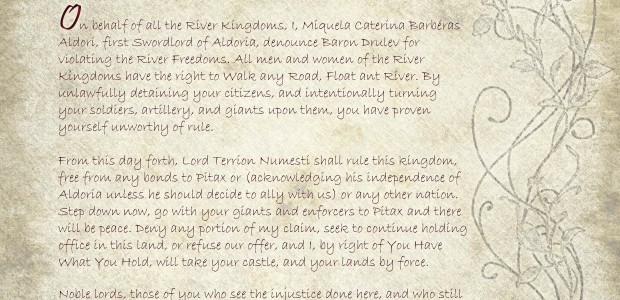 On behalf of all the River Kingdoms, I, Miquela Caterina Barbéras
Aldori, first Swordlord of Aldoria, denounce Baron Drulev for
violating the River Freedoms. All men and women of the River
Kingdoms have the right to Walk any Road, Float ant River. By
unlawfully detaining your citizens, and intentionally turning
your soldiers, artillery, and giants upon them, you have proven
yourself unworthy of rule.
From this day forth, Lord Terrion Numesti shall rule this kingdom,
free from any bonds to Pitax or (acknowledging his independence of
Aldoria unless he should decide to ally with us) or any other nation.
Step down now, go with your giants and enforcers to Pitax and there
will be peace. Deny any portion of my claim, seek to continue holding
office in this land, or refuse our offer, and I, by right of You Have
What You Hold, will take your castle, and your lands by force.
Noble lords, those of you who see the injustice done here, and who still